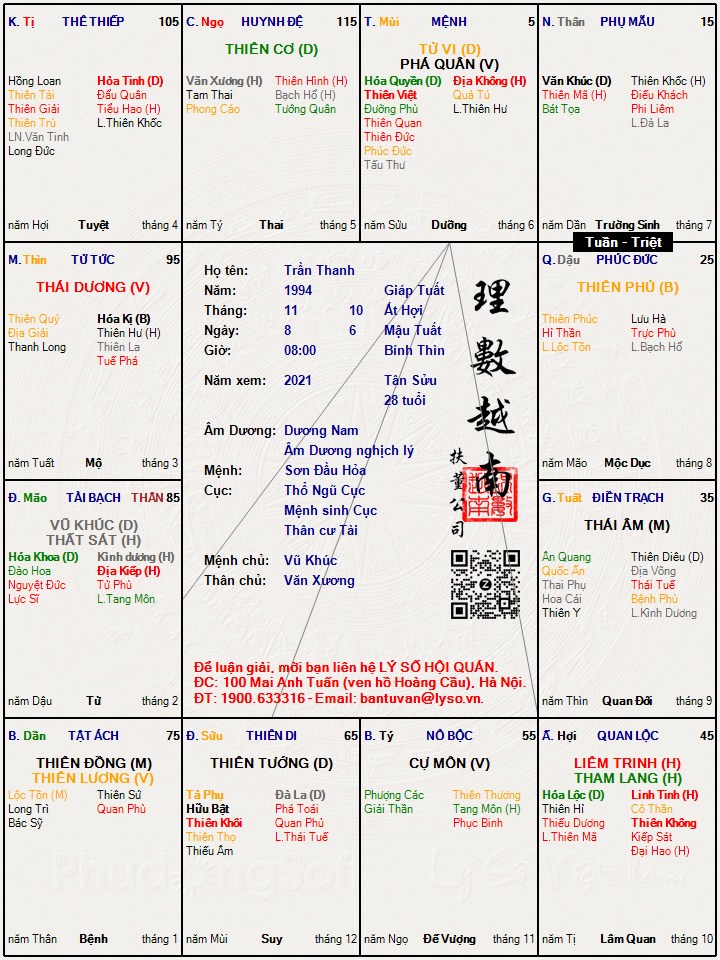 K. Tị THÊ THIẾP 105
Hồng Loan
Thiên Tài
Thiên Giải
Thiên Trù
LN.Văn Tinh
Long Đức
Hỏa Tinh (D)
Đẩu Quân
Tiểu Hao (H)
L.Thiên Khốc
năm Hợi Tuyệt tháng 4
C. Ngọ HUYNH ĐỆ 115
THIÊN CƠ (D)
Văn Xương (H)
Tam Thai
Phong Cáo
Thiên Hình (H)
Bạch Hổ (H)
Tướng Quân
năm Tý Thai tháng 5
T. Mùi MỆNH 5
TỬ VI (D)
PHÁ QUÂN (V)
Hóa Quyền (D)
Thiên Việt
Đường Phù
Thiên Quan
Thiên Đức
Phúc Đức
Tấu Thư
Địa Không (H)
Quả Tú
L.Thiên Hư
năm Sửu Dưỡng tháng 6
N. Thân PHỤ MẪU 15
Văn Khúc (D)
Thiên Mã (H)
Bát Tọa
Thiên Khốc (H)
Điếu Khách
Phi Liêm
L.Đà La
năm Dần Trường Sinh tháng 7
Tuần - Triệt
M. Thìn TỬ TỨC 95
THÁI DƯƠNG (V)
Thiên Quý
Địa Giải
Thanh Long
Hóa Kị (B)
Thiên Hư (H)
Thiên La
Tuế Phá
năm Tuất Mộ tháng 3
Họ tên: Trần Thanh
Năm: 1994 Giáp Tuất
Tháng: 11 10 Ất Hợi
Ngày: 8 6 Mậu Tuất
Giờ: 08:00 Bính Thìn
Năm xem: 2021 Tân Sửu
28 tuổi
Âm Dương: Dương Nam
Âm Dương nghịch lý
Mệnh: Sơn Đầu Hỏa
Cục: Thổ Ngũ Cục
Mệnh sinh Cục
Thân cư Tài
Mệnh chủ: Vũ Khúc
Thân chủ: Văn Xương
理數越南
扶董公司
Để luận giải, mời bạn liên hệ LÝ SỐ HỘI QUÁN.
ĐC: 100 Mai Anh Tuấn (ven hồ Hoàng Cầu), Hà Nội.
ĐT: 1900.633316 - Email: bantuvan@lyso.vn.
Q. Dậu PHÚC ĐỨC 25
THIÊN PHỦ (B)
Thiên Phúc
Hỉ Thần
L.Lộc Tồn
Lưu Hà
Trực Phù
L.Bạch Hổ
năm Mão Mộc Dục tháng 8
Đ. Mão TÀI BẠCH THÂN 85
VŨ KHÚC (D)
THẤT SÁT (H)
Hóa Khoa (D)
Đào Hoa
Nguyệt Đức
Lực Sĩ
Kình dương (H)
Địa Kiếp (H)
Tử Phù
L.Tang Môn
năm Dậu Tử tháng 2
G. Tuất ĐIỀN TRẠCH 35
THÁI ÂM (M)
Ân Quang
Quốc Ấn
Thai Phụ
Hoa Cái
Thiên Y
Thiên Diêu (D)
Địa Võng
Thái Tuế
Bệnh Phù
L.Kình Dương
năm Thìn Quan Đới tháng 9
B. Dần TẬT ÁCH 75
THIÊN ĐỒNG (M)
THIÊN LƯƠNG (V)
Lộc Tồn (M)
Long Trì
Bác Sỹ
Thiên Sứ
Quan Phù
năm Thân Bệnh tháng 1
Đ. Sửu THIÊN DI 65
THIÊN TƯỚNG (D)
Tả Phụ
Hữu Bật
Thiên Khôi
Thiên Thọ
Thiếu Âm
Đà La (D)
Phá Toái
Quan Phủ
L.Thái Tuế
năm Mùi Suy tháng 12
B. Tý NÔ BỘC 55
CỰ MÔN (V)
Phượng Các
Giải Thần
Thiên Thương
Tang Môn (H)
Phục Binh
năm Ngọ Đế Vượng tháng 11
Ấ. Hợi QUAN LỘC 45
LIÊM TRINH (H)
THAM LANG (H)
Hóa Lộc (D)
Thiên Hỉ
Thiếu Dương
L.Thiên Mã
Linh Tinh (H)
Cô Thần
Thiên Không
Kiếp Sát
Đại Hao (H)
năm Tị Lâm Quan tháng 10